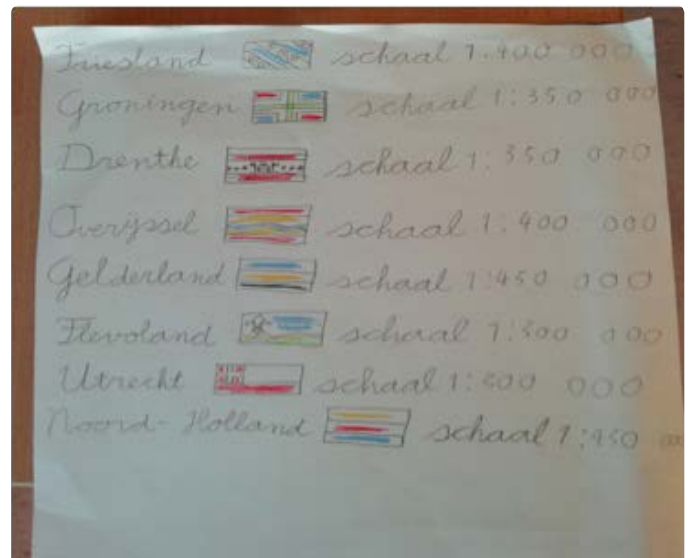 Friesland schaal 1.400 000
Groningen schaal 1:350 000
Drenthe schaal 1:350 000
Overijssel schaal 1:400 000
Gelderland schaal 1:450 000
Flevoland schaal 1:300 000
Utrecht schaal 1:300 000
Noord-Holland schaal 1:450 000